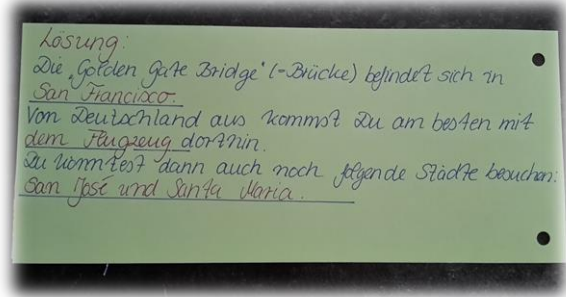 Lösung:
Die „Golden Gate Bridge" (-Brücke) befindet sich in
San Francisco.
Von Deutschland aus kommst Du am besten mit
dem Flugzeug dorthin.
Du könntest dann auch noch folgende Städte besuchen:
San José und Santa Maria.